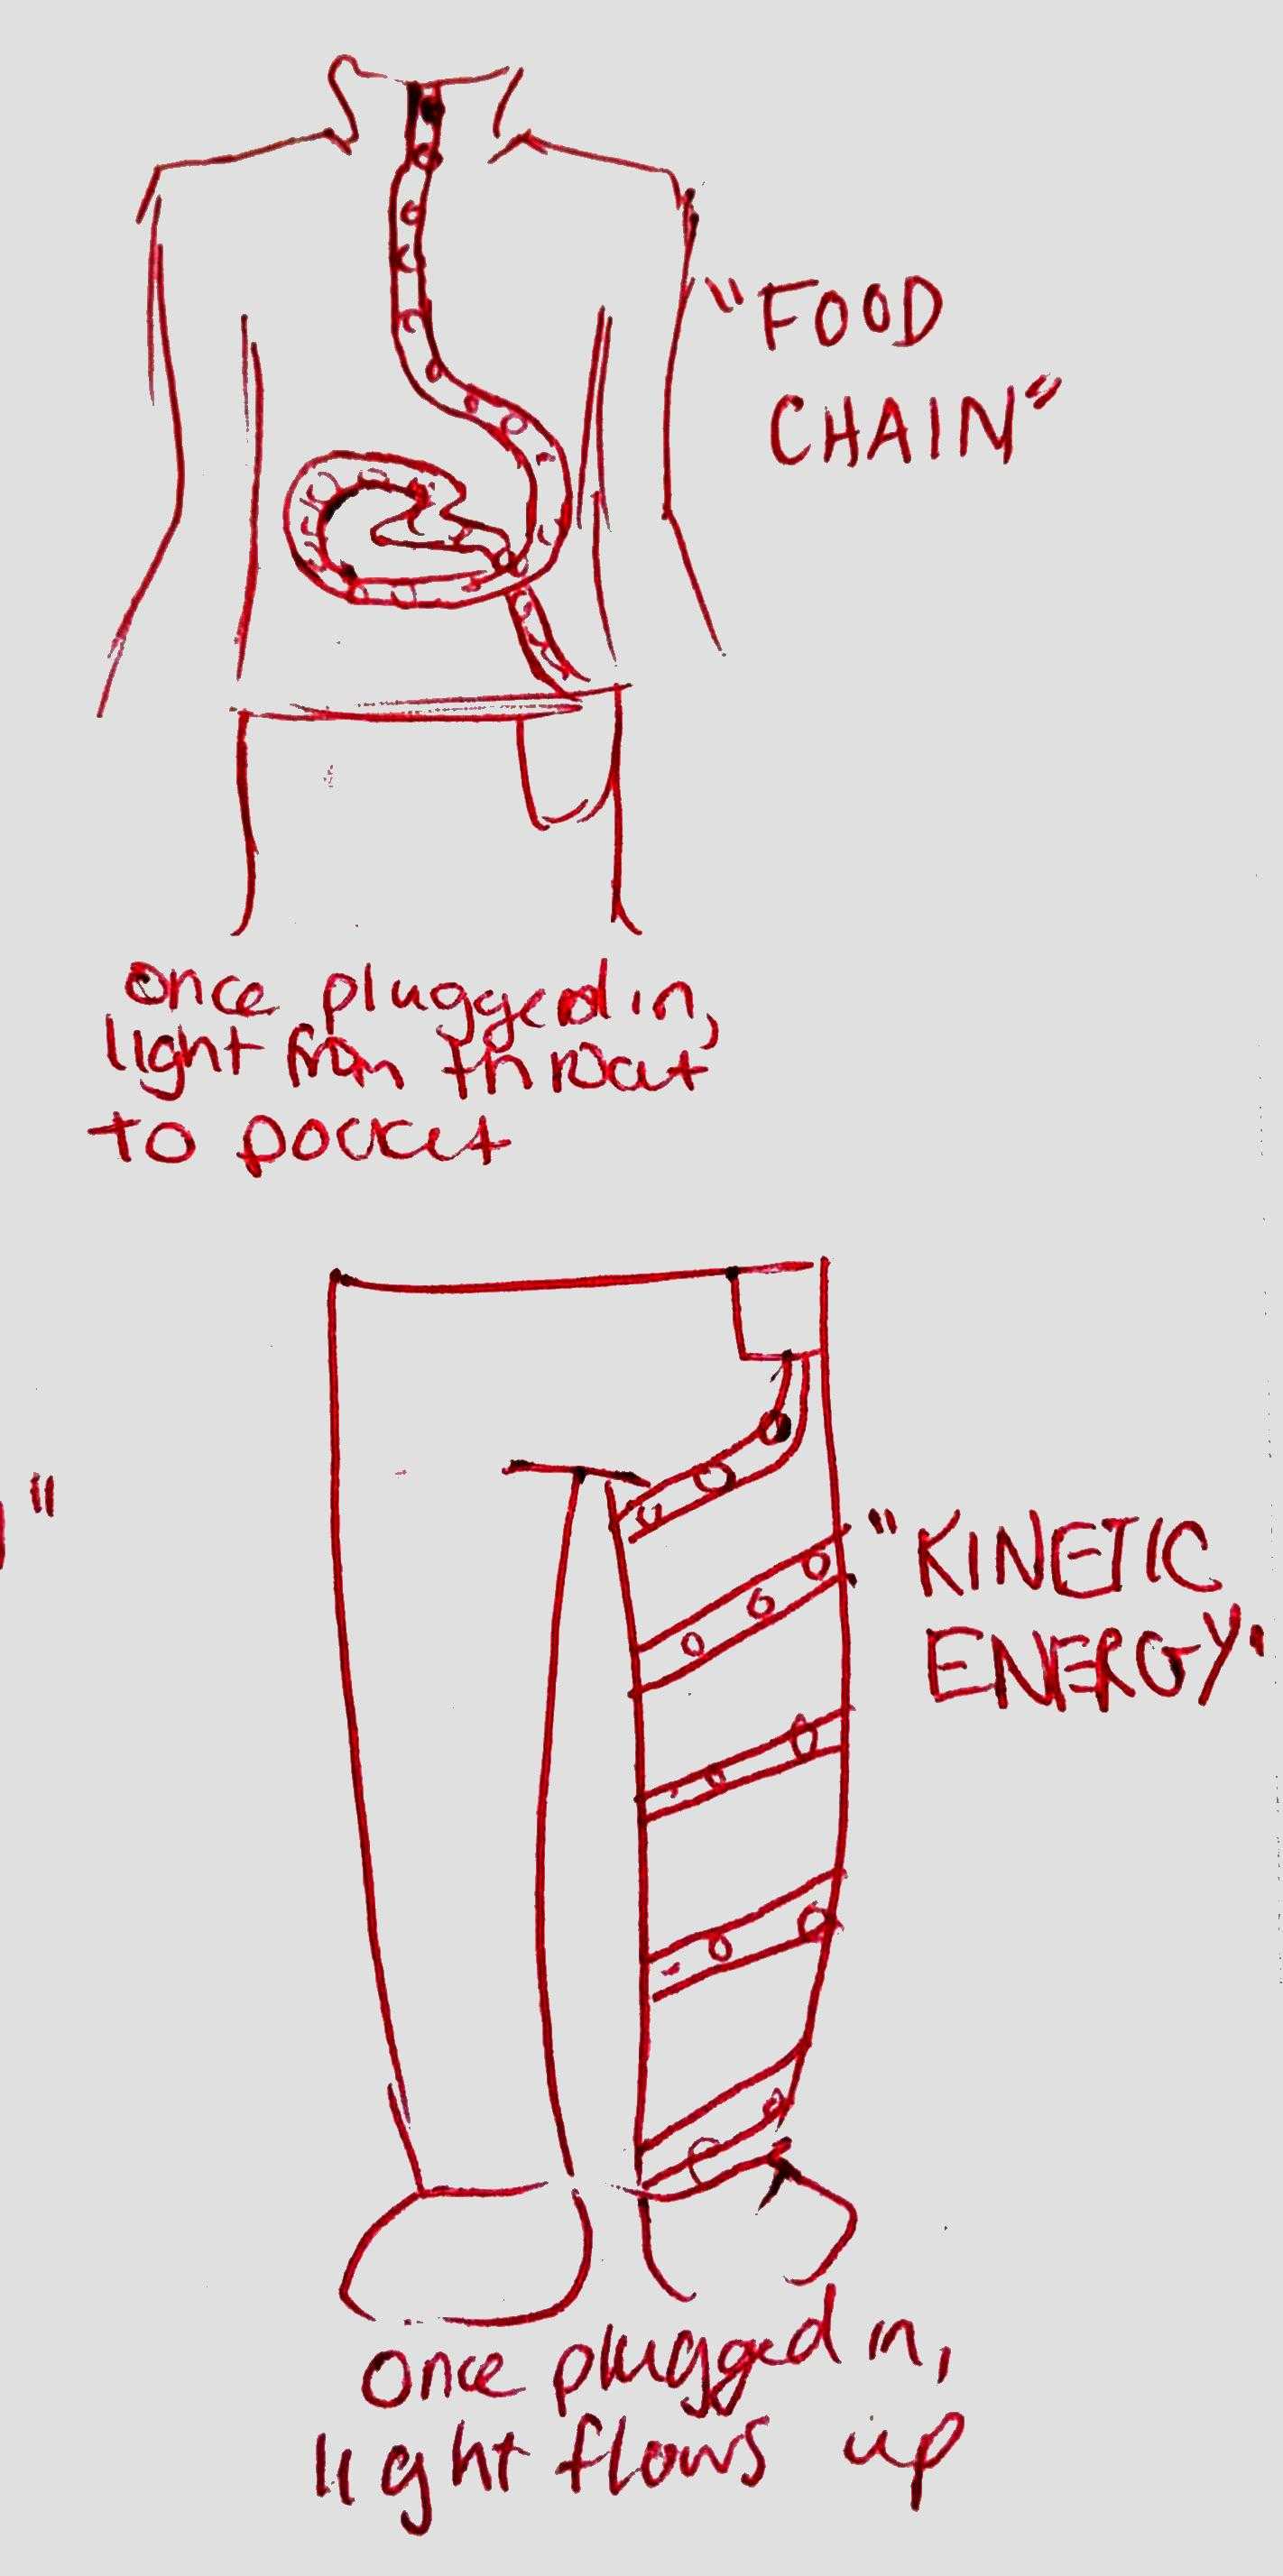 "FOOD
CHAIN"
once plugged in,
light from throat
to pocket
"
"KINETIC
ENERGY"
once plugged in,
light flows up